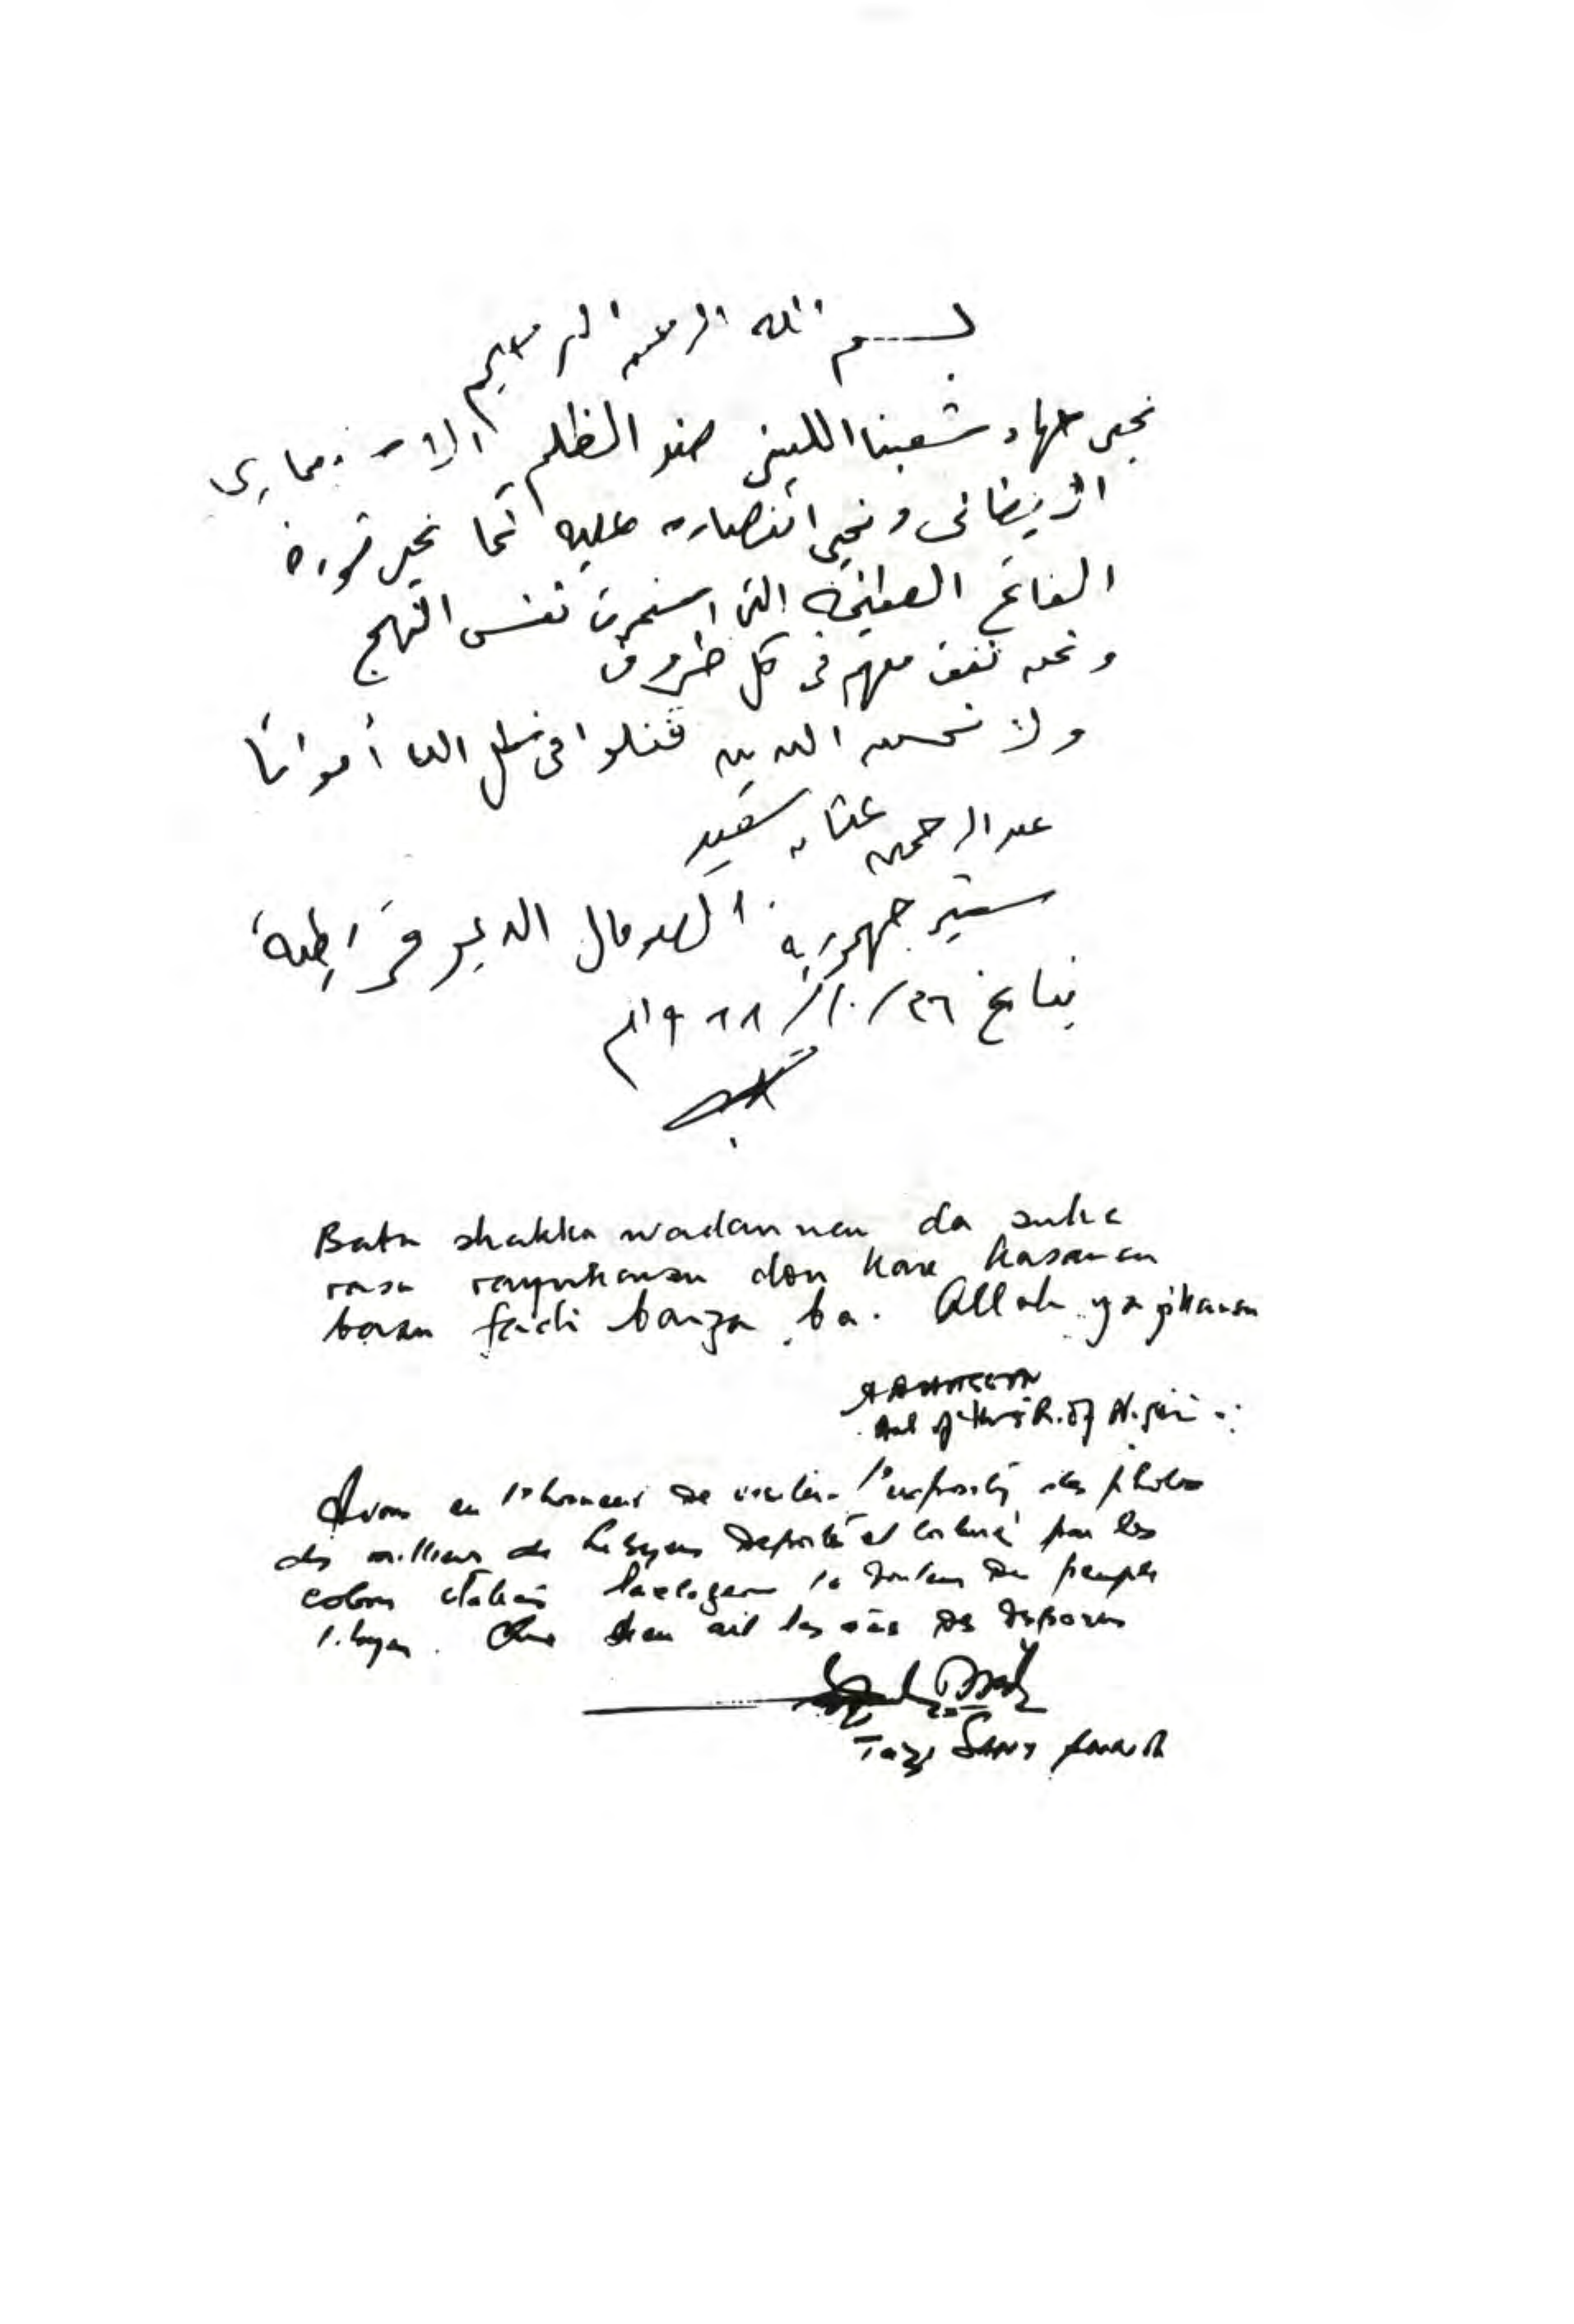 بسم الله الرحمن الرحيم
نحيى جهاد شعبنا الليبى ضد الظلم الاستعمارى
الايطالى ونحيى انتصاره عليه كما نحيى ثورة
الفاتح العظيمة التى استمرت نفس النهج
ونحن نقف معهم فى كل ظروف
ولا تحسبن الذين قتلوا فى سبيل الله أمواتا
عبد الرحمن عثمان سعيد
سفير جمهورية الصومال الديموقراطية
بتاريخ ٢٦/١٠/١٩٨٨م
Bata shakka wadannan da suka
rasa rayukansu don kare kasarsu
basu fadi banza ba. Allah ya jikansu
of Nigeria
Avons eu l'honneur de visiter l'exposition des photos
des milliers de Libyens déporté et torturé par les
colons italiens la douleur du peuple
libyen. Que Dieu ait les âmes des disparus